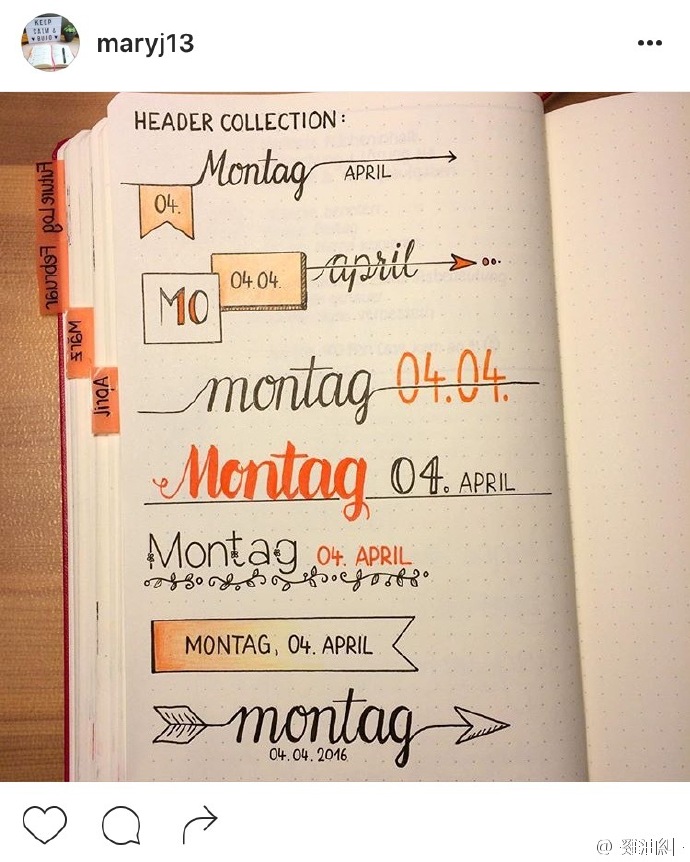 KEEP
CALM &
♥ BUJO ♥
maryj13
HEADER COLLECTION:
Montag APRIL
04.
april
04.04.
MO
montag 04.04.
Montag 04. APRIL
Montag 04. APRIL
MONTAG, 04. APRIL
montag
04.04.2016
Future Log
Februar
März
April